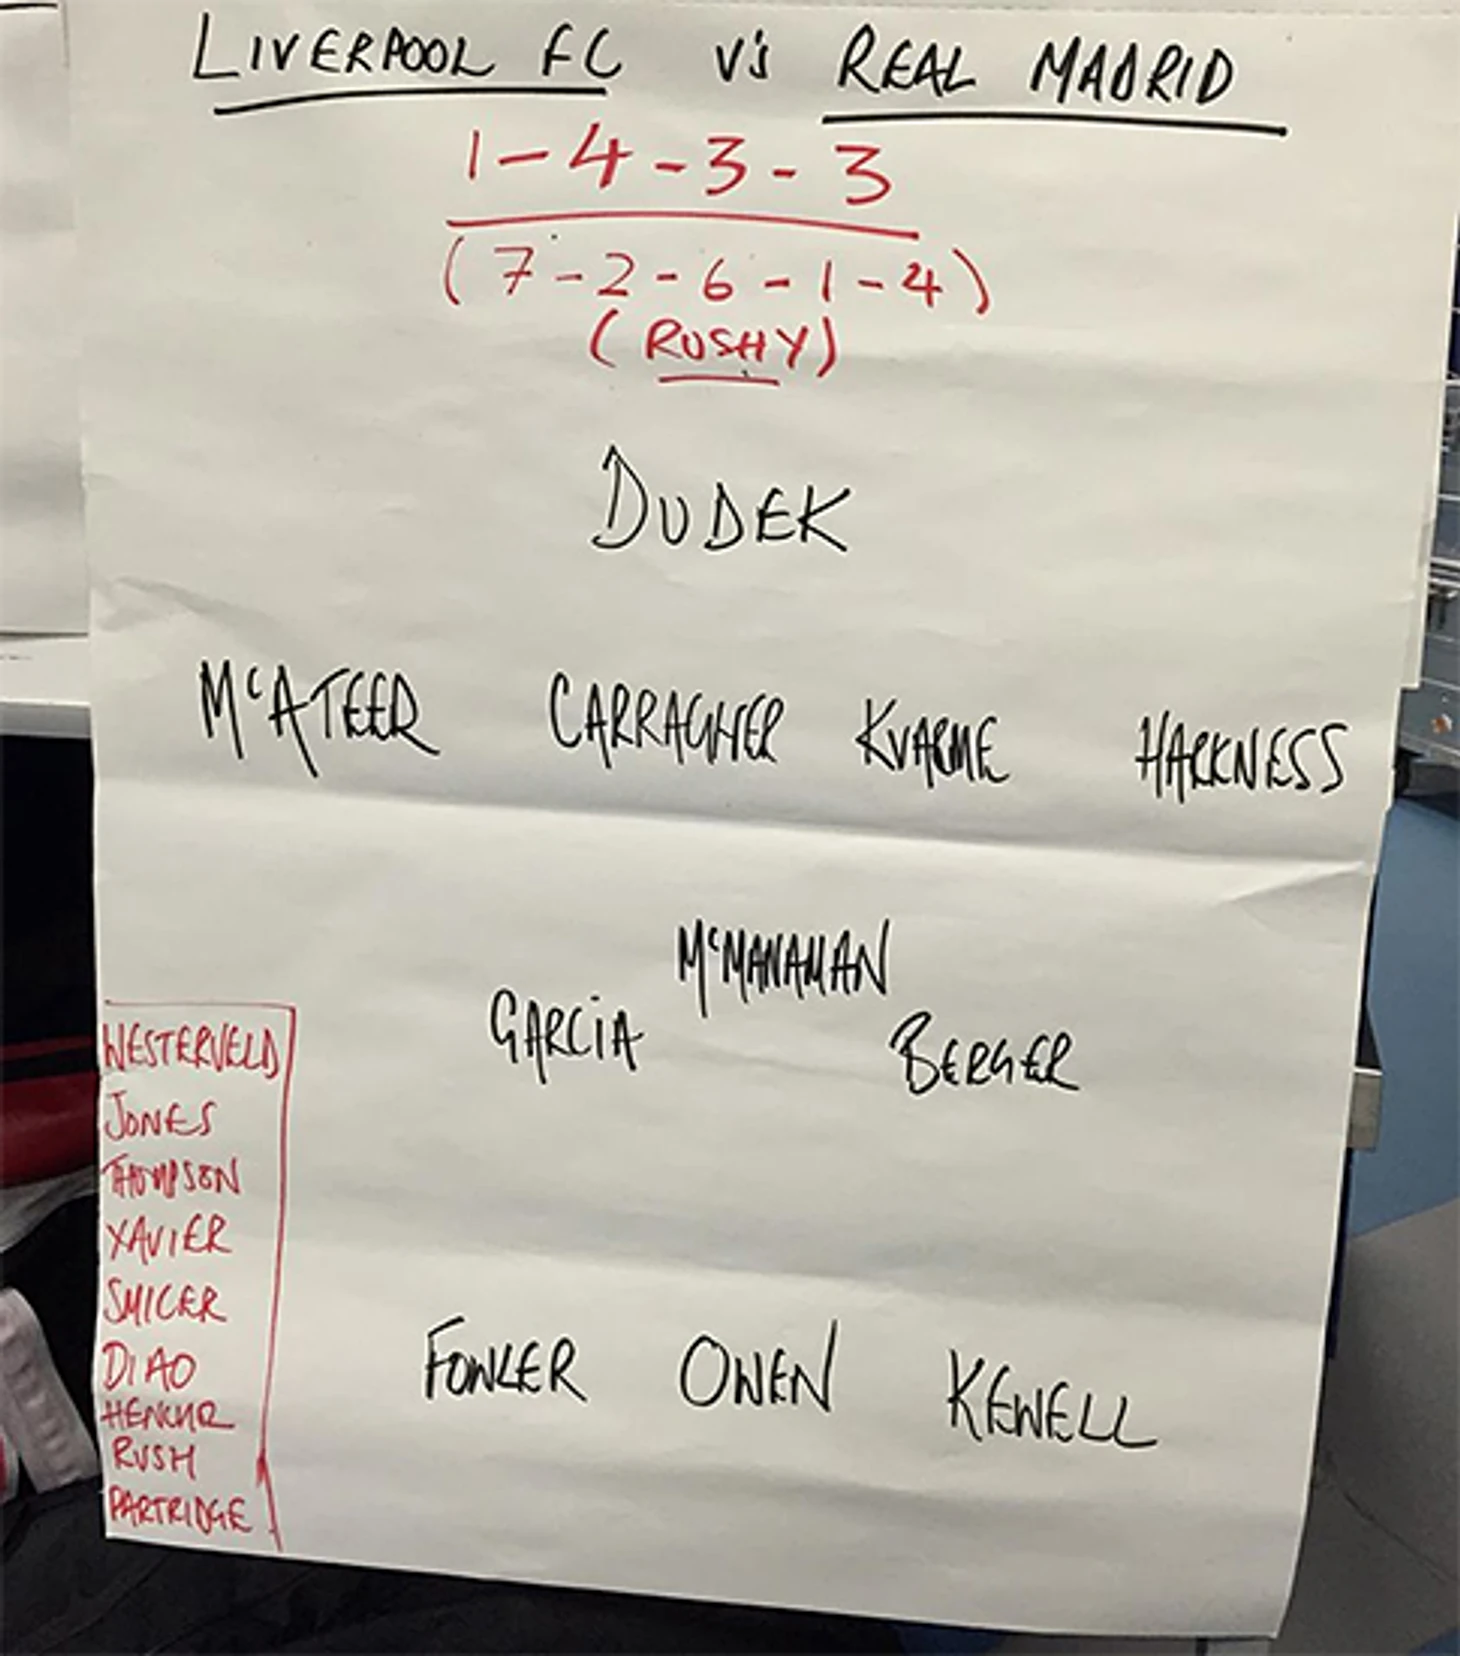 LIVERPOOL FC v's REAL MADRID
1-4-3-3
(7-2-6-1-4)
(RUSHY)
DUDEK
McATEER CARRAGHER KVARME HARKNESS
McMANAMAN
GARCIA BERGER
WESTERVELD
JONES
THOMPSON
XAVIER
SMICER
DIAO
FOWLER OWEN KEWELL
HENCHR
RUSH
PARTRIDGE